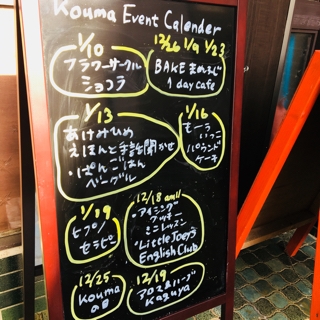 Kouma Event Calender
1/10
フラワーサークル
ショコラ
12/26 1/9 1/23
BAKE まめふじ
1 day cafe
1/13
あけみひめ
えほんと手話聞かせ
・ぱんごはん
ベーグル
1/16
もーう
いっこ
パウンド
ケーキ
1/19
ヒプノ
セラピー
12/18 am11
・アイシング
クッキー
ミニレッスン
・Little Joey's
English Club
12/25
Kouma
の日
12/19
アロマ&ハーブ
Kaguya